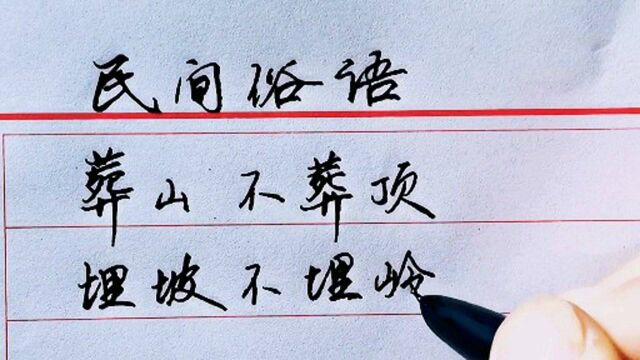 民间俗语
葬山不葬顶
埋坡不埋岭